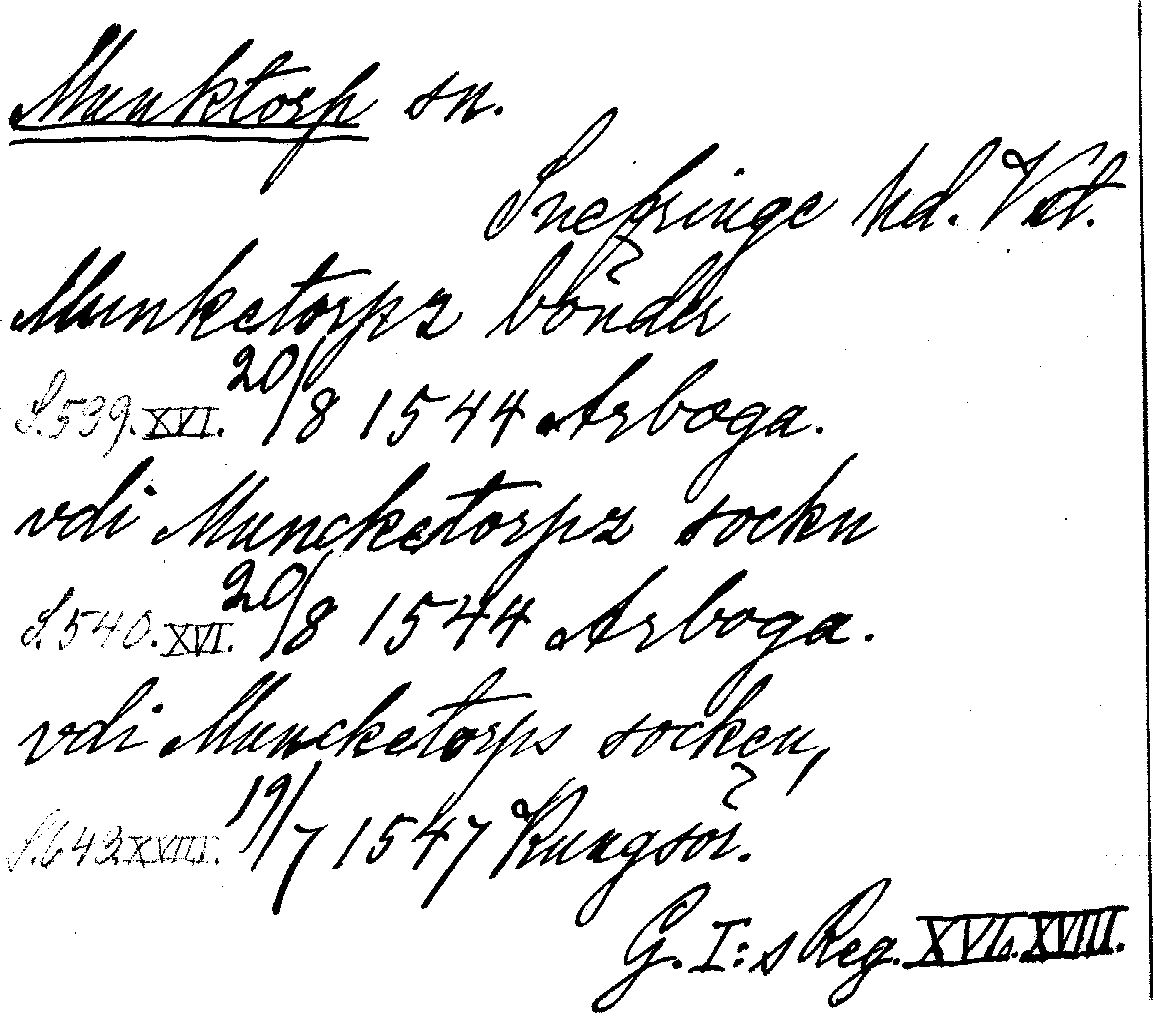 Munktorp sn.
Snefringe hd. Vstm.
Munketorpz bönder
S.539.XVI. 20/8 1544 Arboga.
vdi Muncketorpz sockn
S.540.XVI. 20/8 1544 Arboga.
vdi Muncketorps socken,
S.643.XVIII. 19/7 1547 Kungsör.
G. I:s Reg. XVI. XVIII.